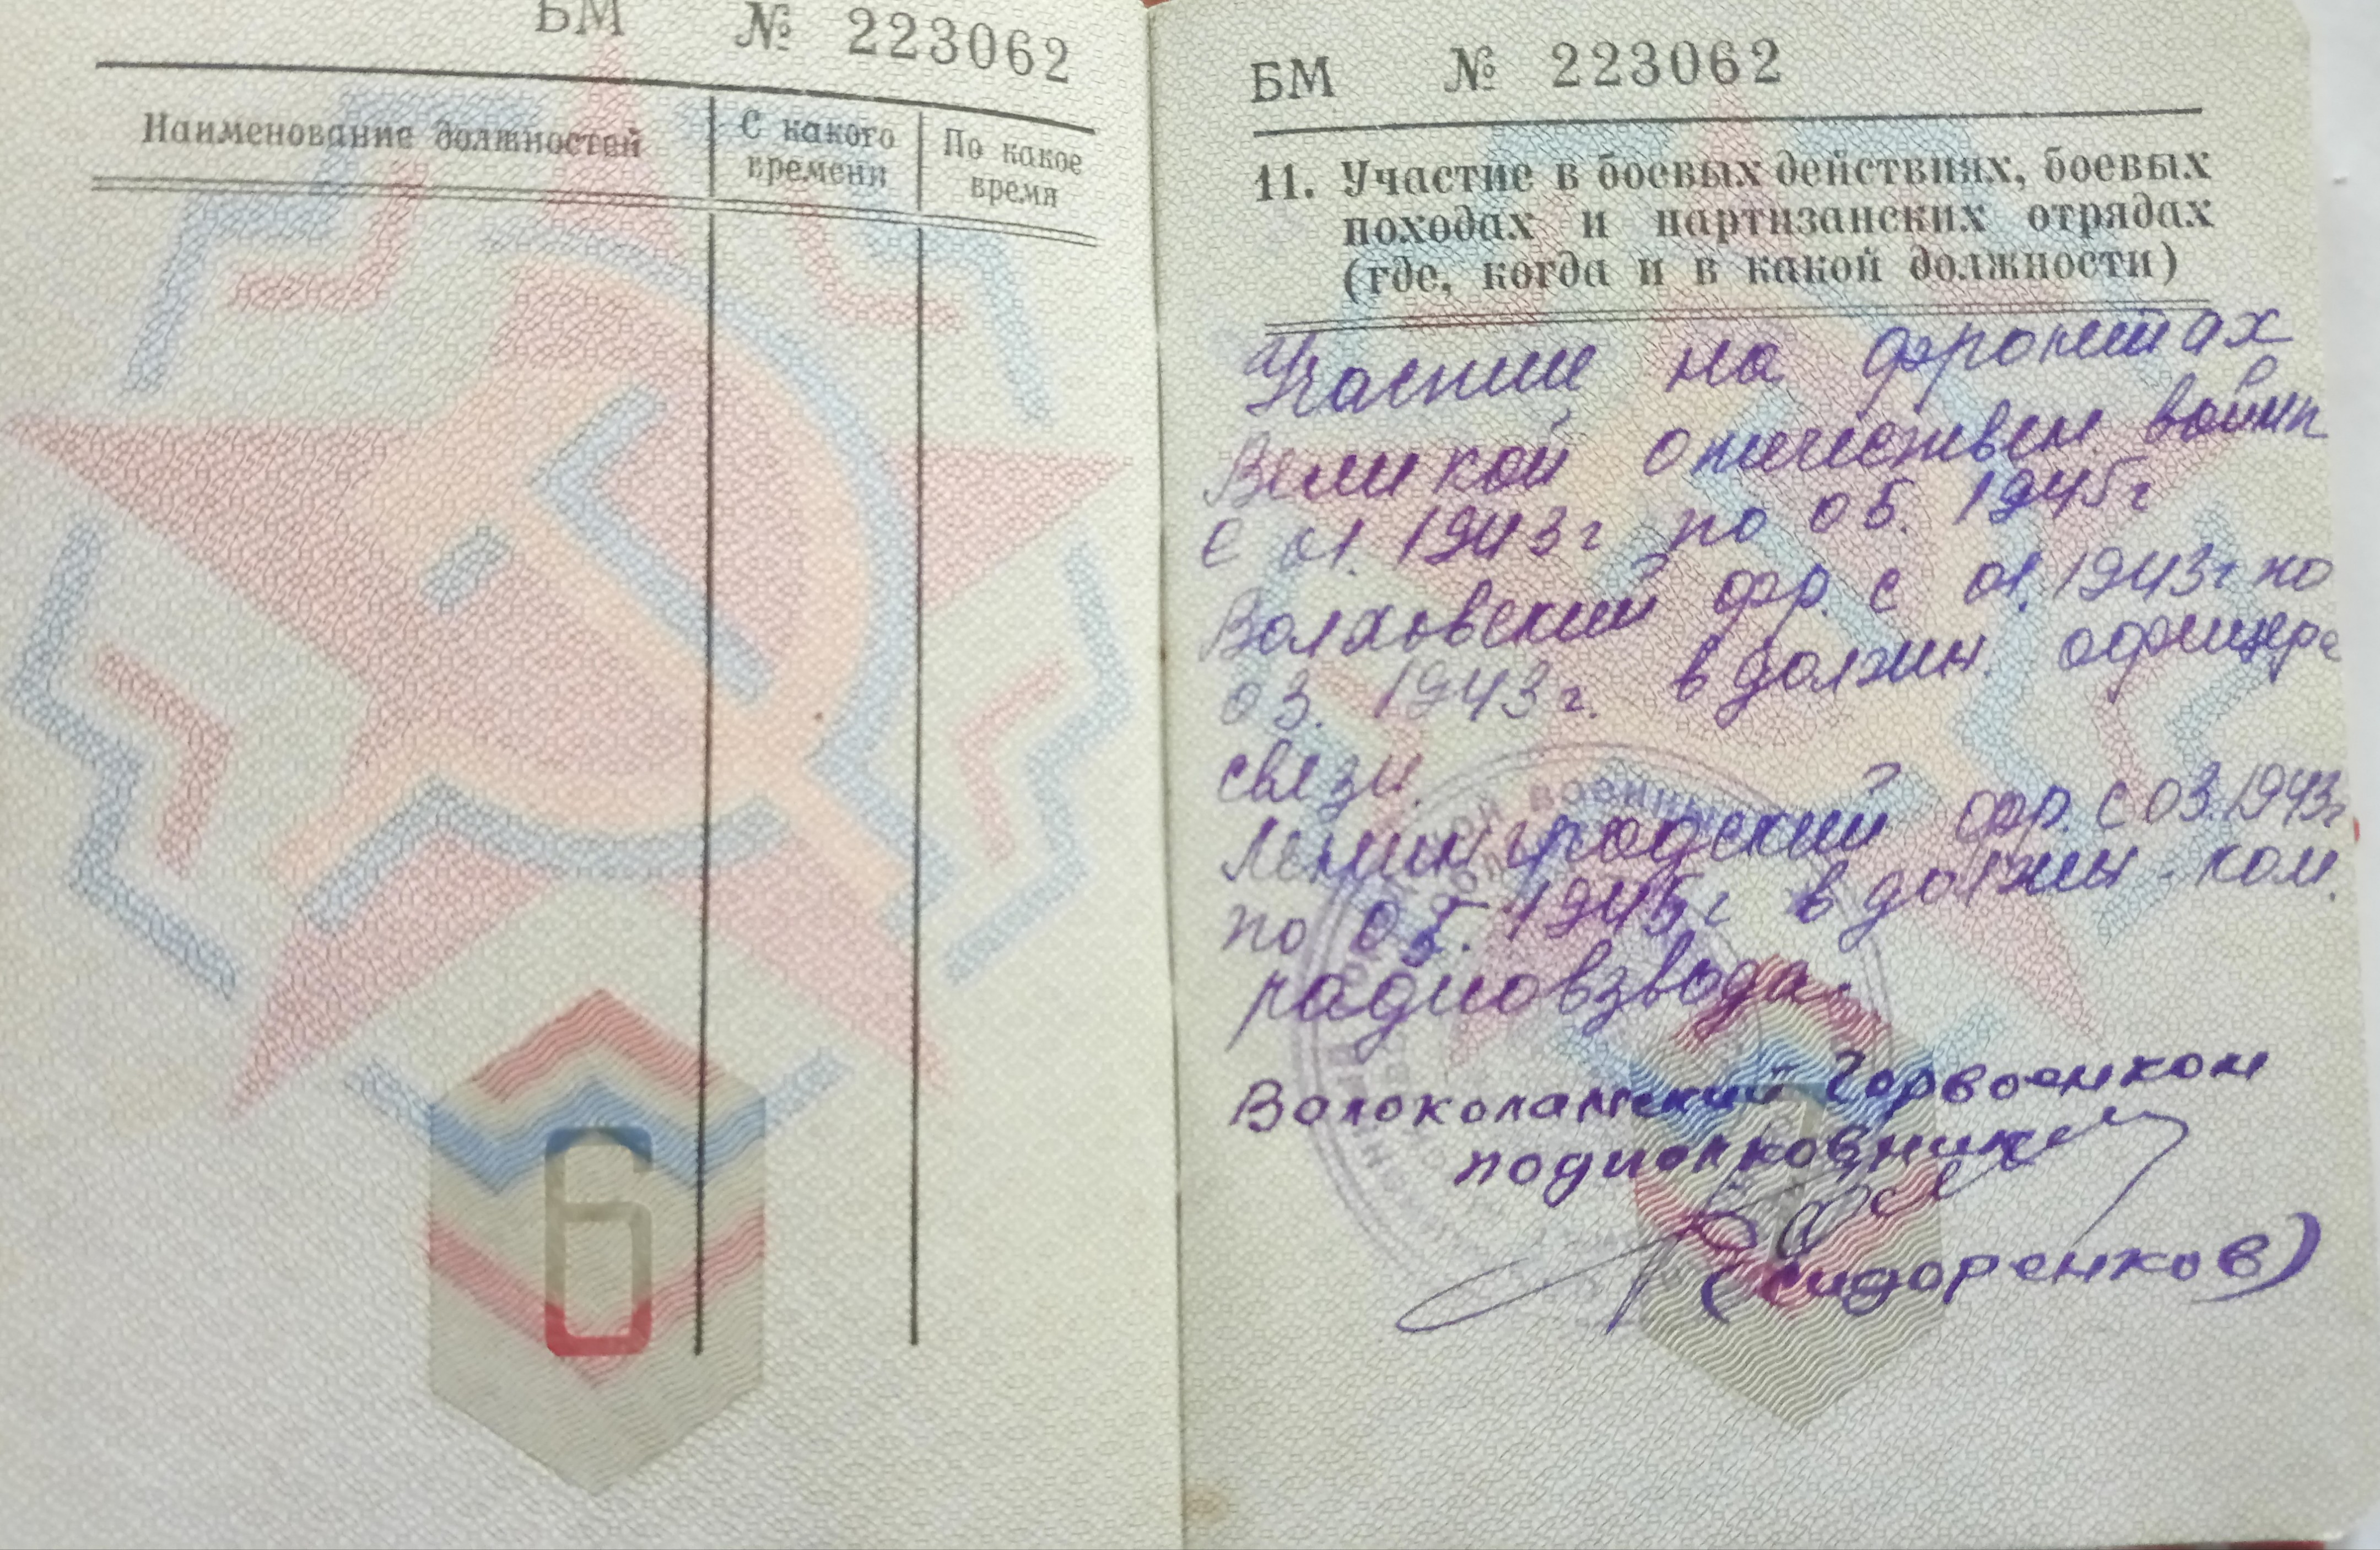 БМ № 223062
Наименование должностей
С какого времени
По какое время
6
БМ № 223062
11. Участие в боевых действиях, боевых
походах и партизанских отрядах
(где, когда и в какой должности)
Участие на фронтах
Великой отечествен. войны
С 01. 1943 г по 05. 1945 г
Волховский фр. с 01. 1943 г по
03. 1943 г. в должн. офицера
связи.
Ленинградский фр. с 03. 1943 г
по 05. 1945 г в должн. ком.
радиовзвода.
Волоколамский Горвоенком
подполковник
(Сидоренков)